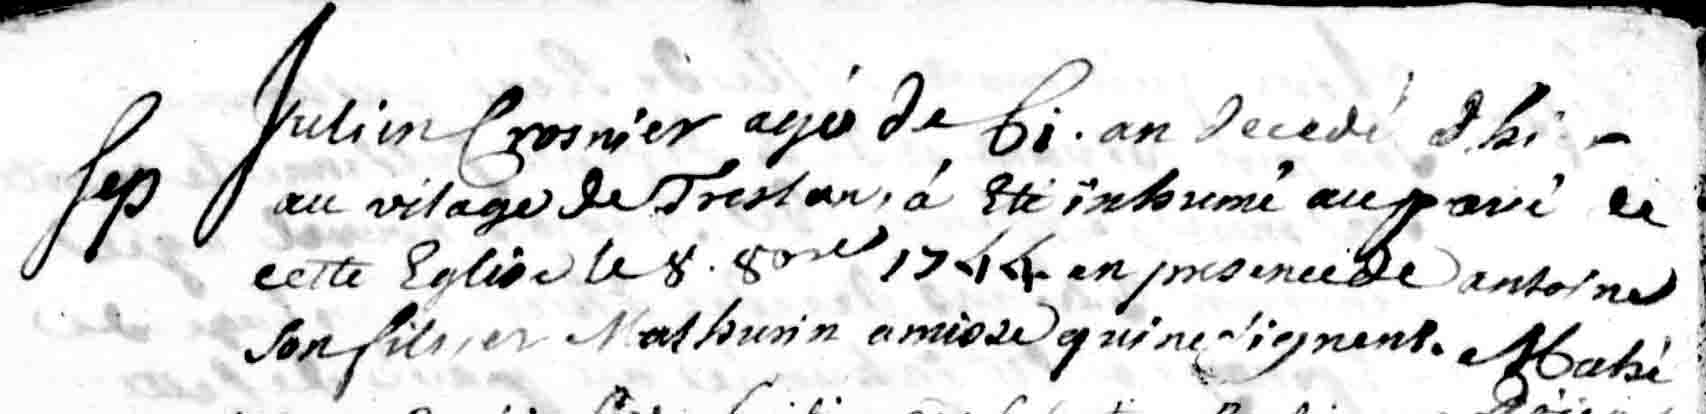 Julien Crosnier agé de 61. an decedé d'hi-
Sep au vilage de Treslan, á Eté inhumé au pavé de
cette Eglise le 8. 8bre 1744 en presence de antoine
son fils, et Mathurin amiose qui ne signent. Mahé